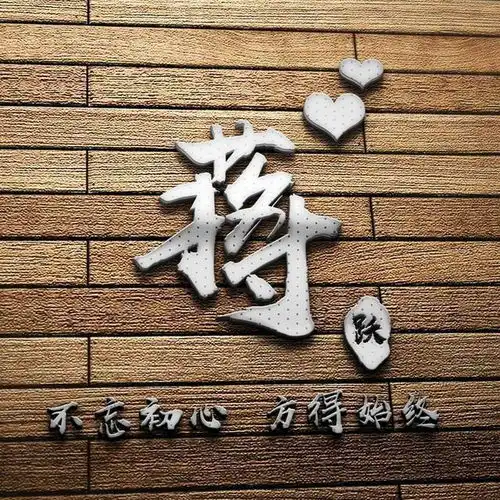 蒋
跃
不忘初心 方得始终